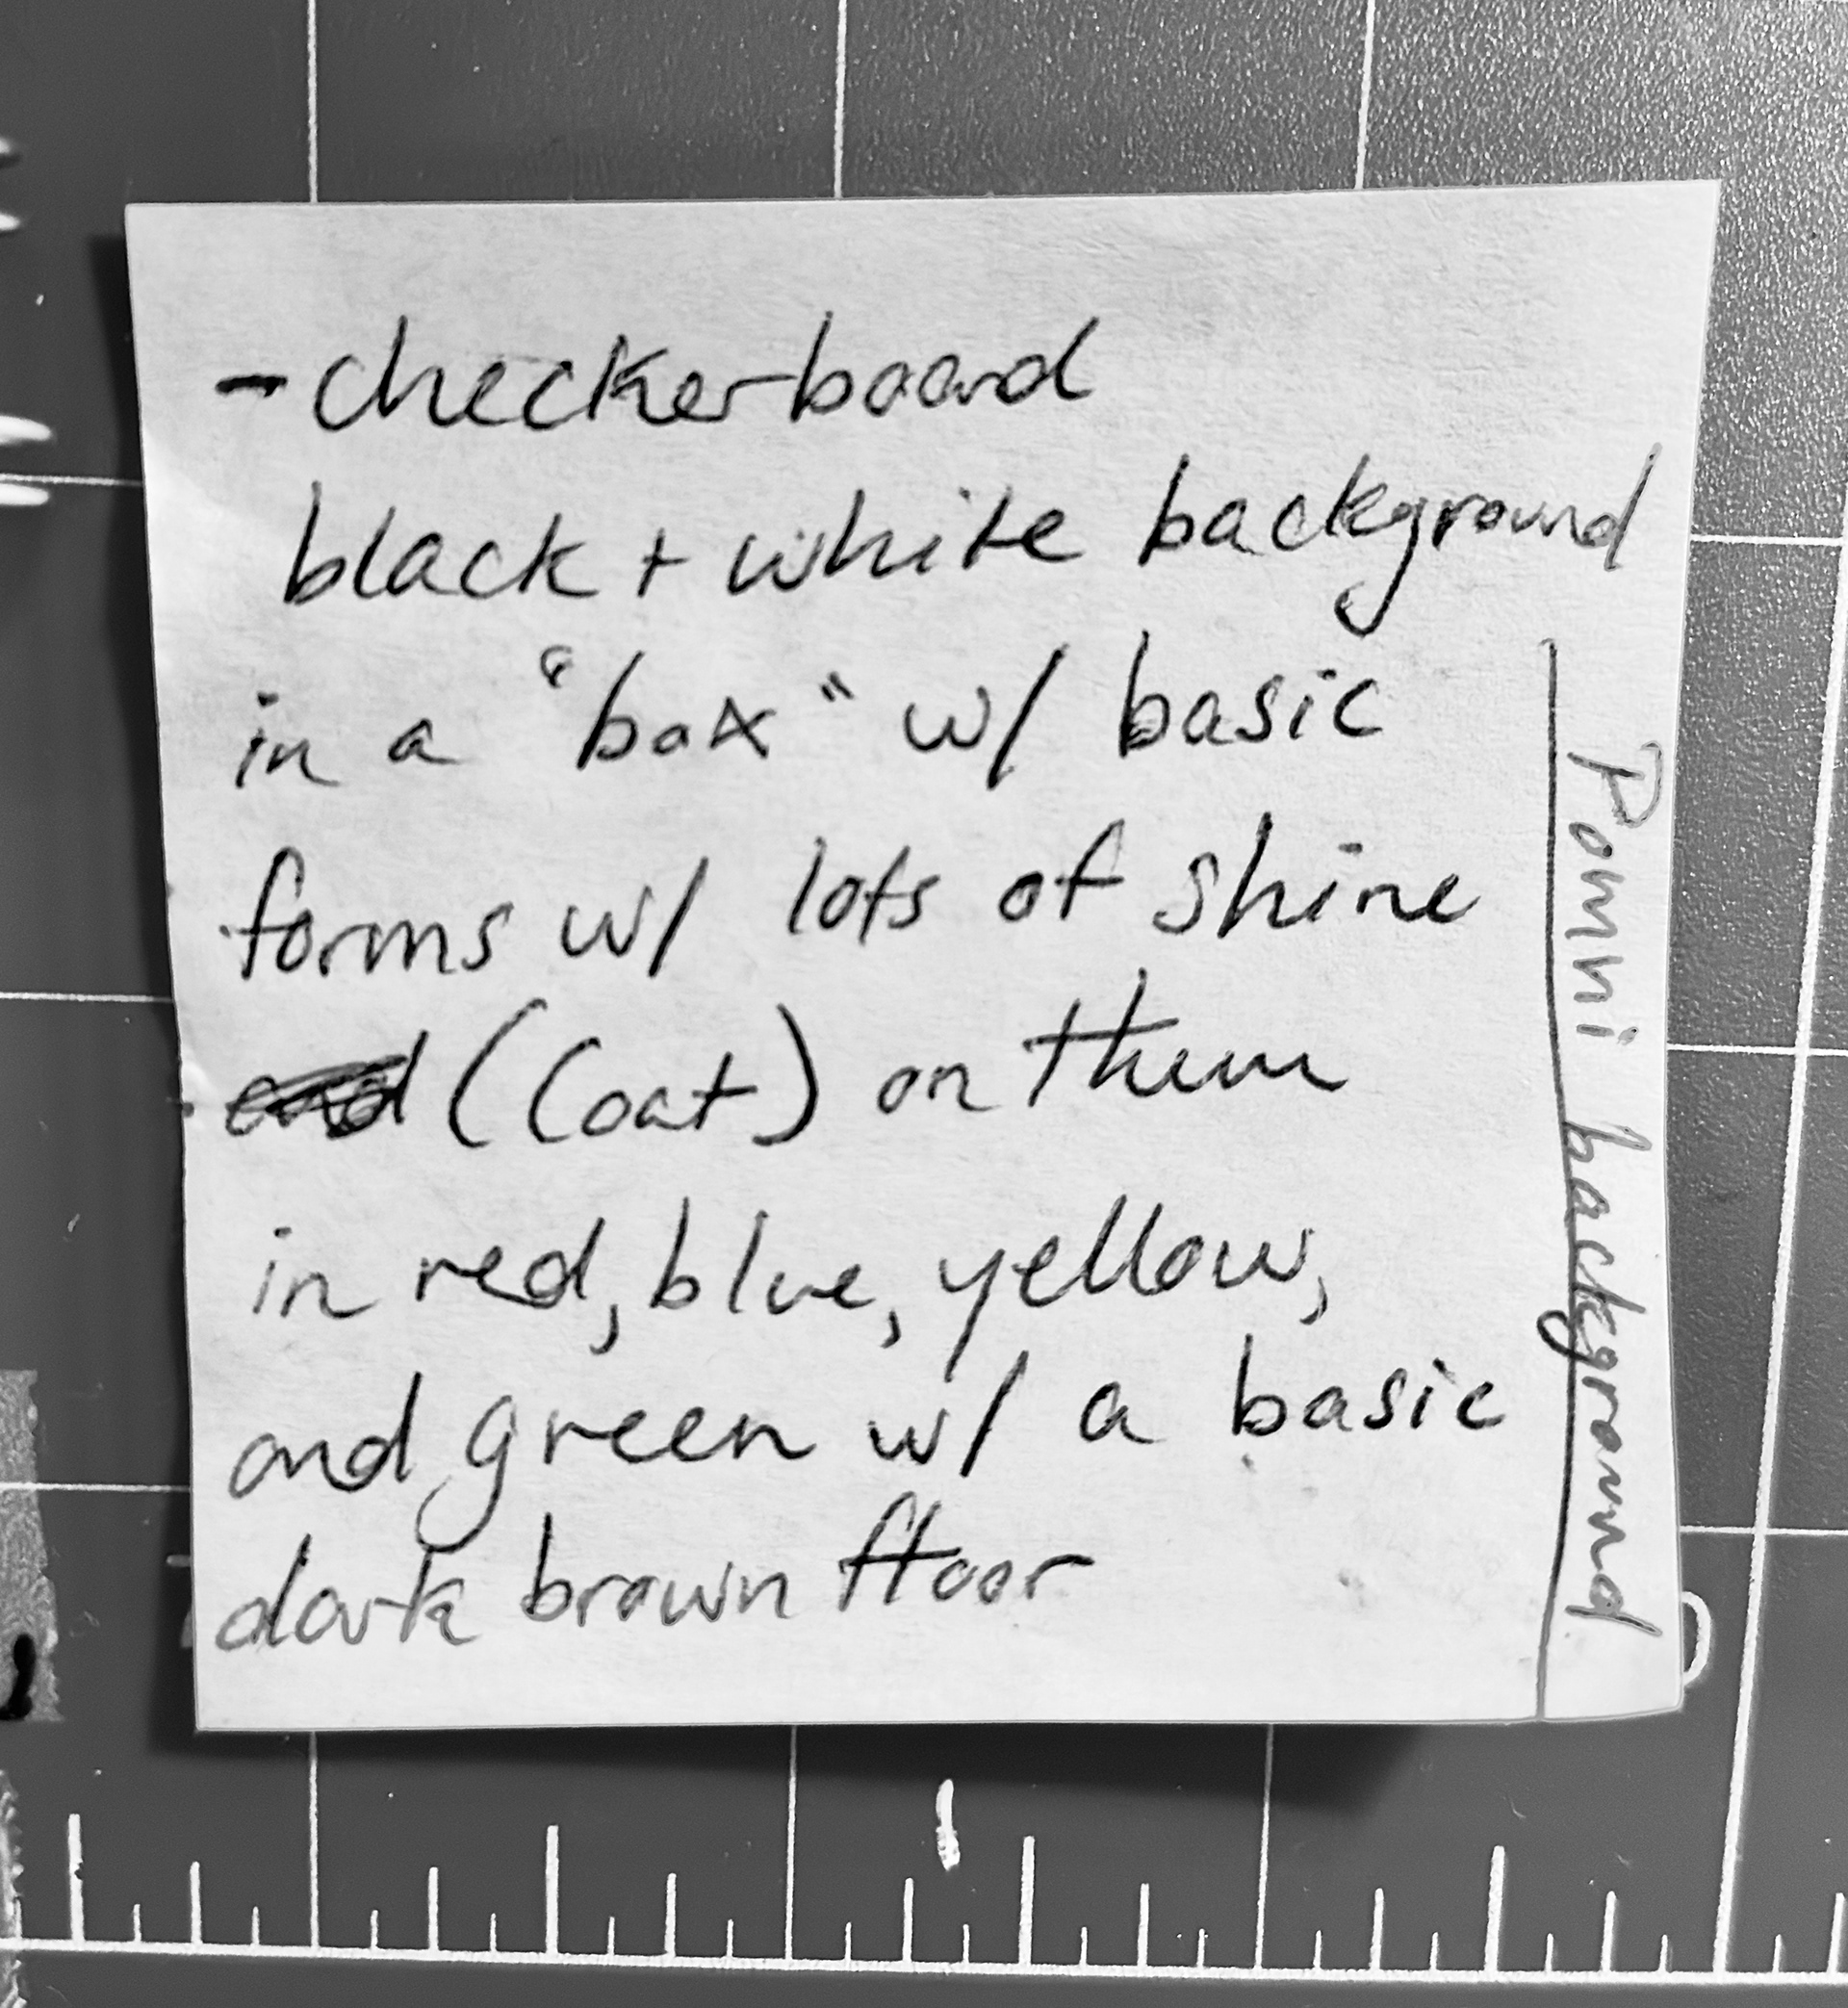 - checkerboard
black + white background
in a "box" w/ basic
forms w/ lots of shine
(Coat) on them
in red, blue, yellow,
and green w/ a basic
dark brown floor
Pomni background